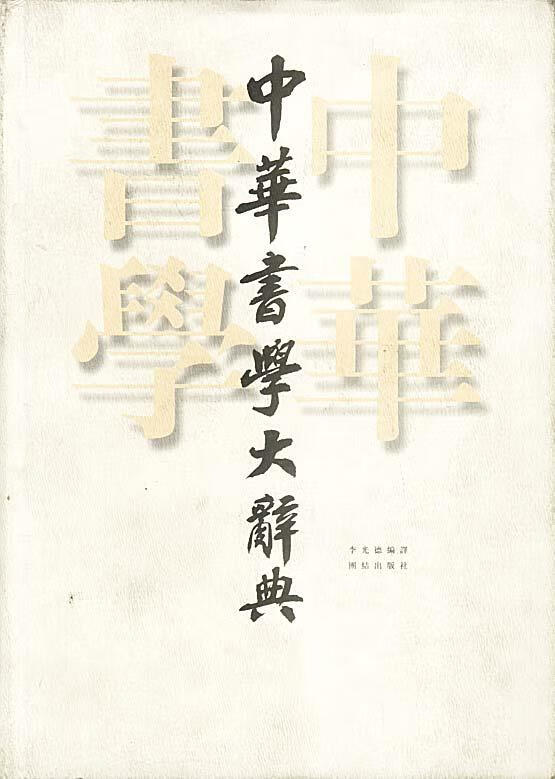 中華
書學
中華書學大辭典
李光德編譯
團結出版社